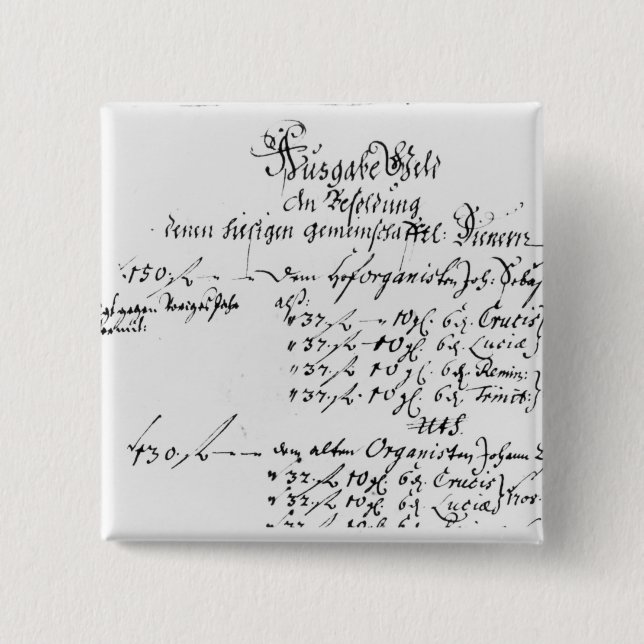 Ausgabe Geld
An Besoldung
denen hiesigen gemeinschafftl: Dienern
150. fl — dem Hoforganisten Joh: Sebas
gegen voriges Jahr
alß:
" 37. fl — 10 gl. 6 d. Crucis
" 37. fl 10 gl. 6 d. Luciæ
" 37. fl 10 gl. 6 d. Remin:
" 37. fl. 10 gl. 6 d. Trinit:
130. fl — dem alten Organisten Johann
" 32. fl 10 gl. 6 d. Crucis
" 32. fl 10 gl. 6 d. Luciæ